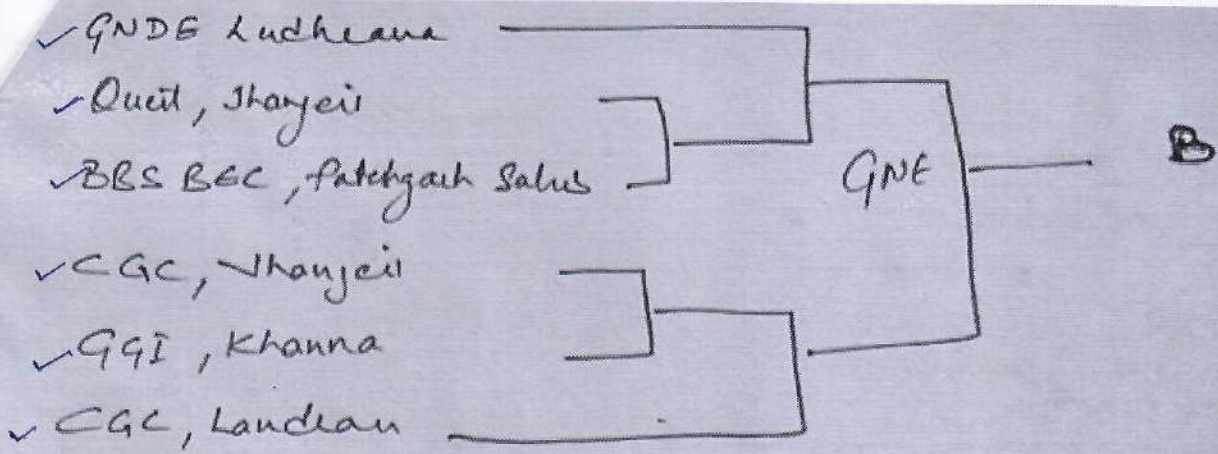 GNDE Ludhiana
Quest, Jhanjeri
BBS BEC, Fatehgarh Sahib
CGC, Jhanjeri
GGI, Khanna
CGC, Landran
GNE
B